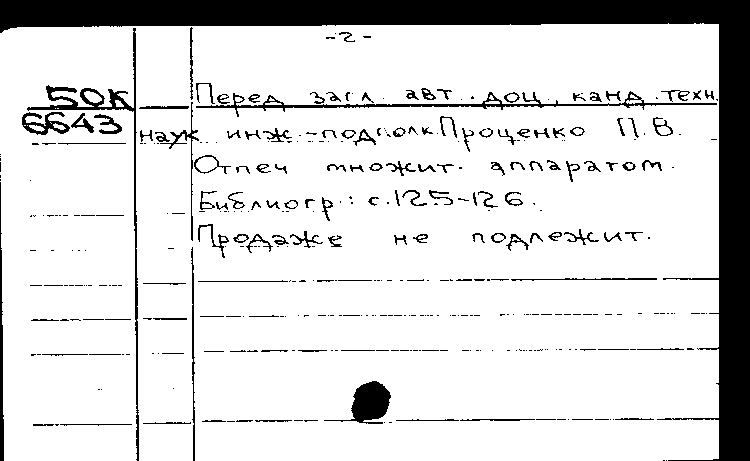 -2-
50К Перед загл. авт.: доц., канд. техн.
6643 наук инж.-подполк. Проценко П.В.
Отпеч. множит. аппаратом.
Библиогр.: с.125-126.
Продаже не подлежит.